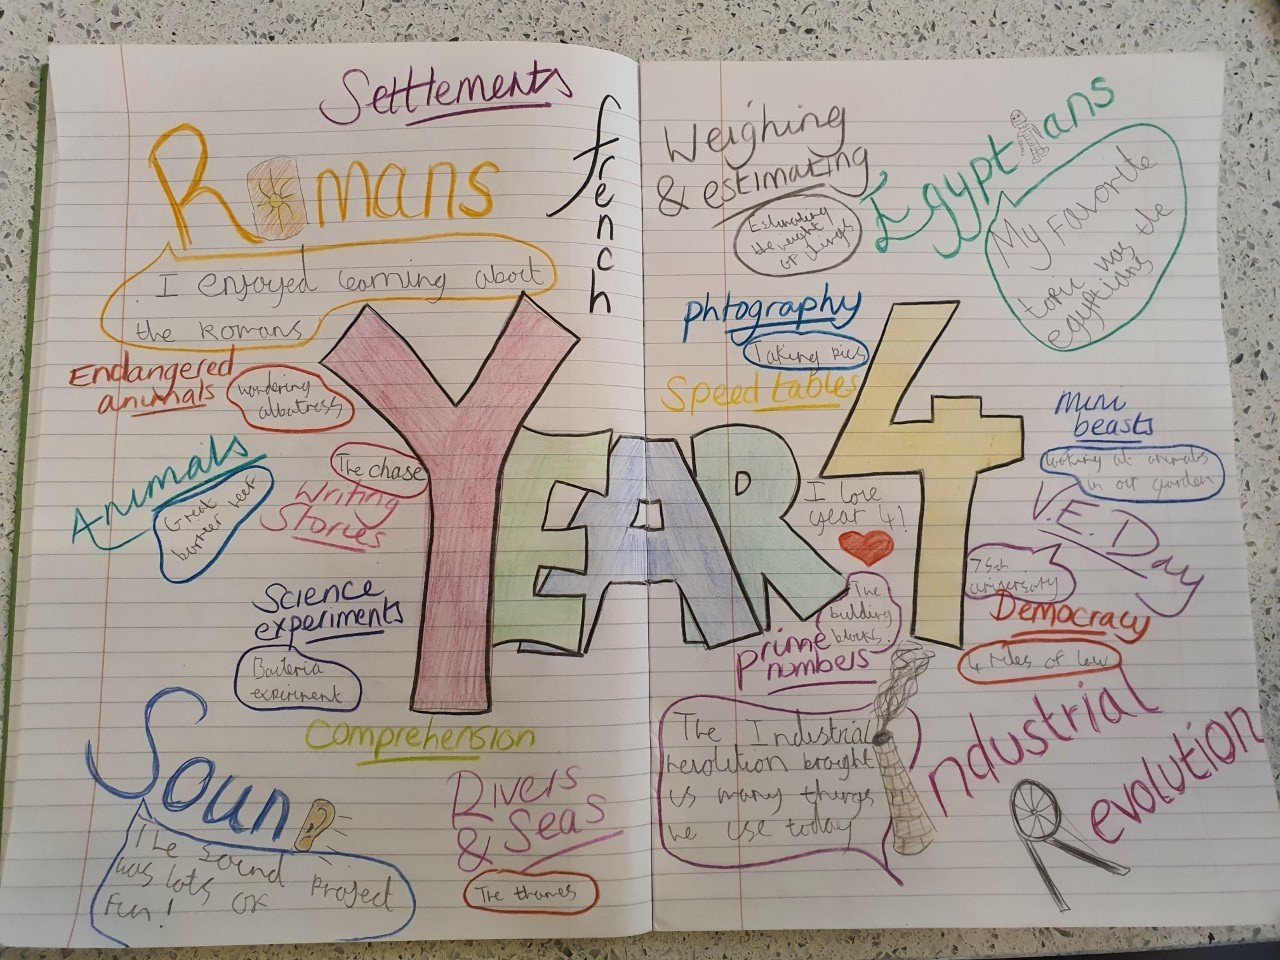 Settlements
french
Romans
I enjoyed learning about
the Romans
Endangered
animals
wondering
albatross
Animals
Great
barrier reef
The chase
Writing
Stories
Science
experiments
Bacteria
experiment
Comprehension
Soun
The sound project
was lots of
fun!
Rivers
& Seas
The thames
YEAR 4
Weighing
& estimating
Estimating
the weight
of things
Egyptians
My favorite
topic was the
egyptians
phtography
Taking pics
Speed tables
mini
beasts
looking at animals
in our garden
I love
year 4!
V.E. Day
75th
aniversary
The
building
blocks.
prime
numbers
Democracy
4 rules of law
The Industrial
revolution braught
us many things
we use today
Industrial
Revolution